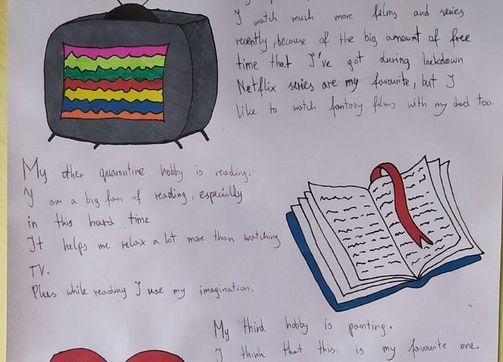 I watch much more films and series
recently, because of the big amount of free
time that I've got during lockdown
Netflix series are my favourite, but I
like to watch fantasy films with my dad too.
My other quarantine hobby is reading.
I am a big fan of reading, especially
in this hard time
It helps me relax a lot more than watching
TV.
Plus while reading I use my imagination.
My third hobby is painting.
I think that this is my favourite one.